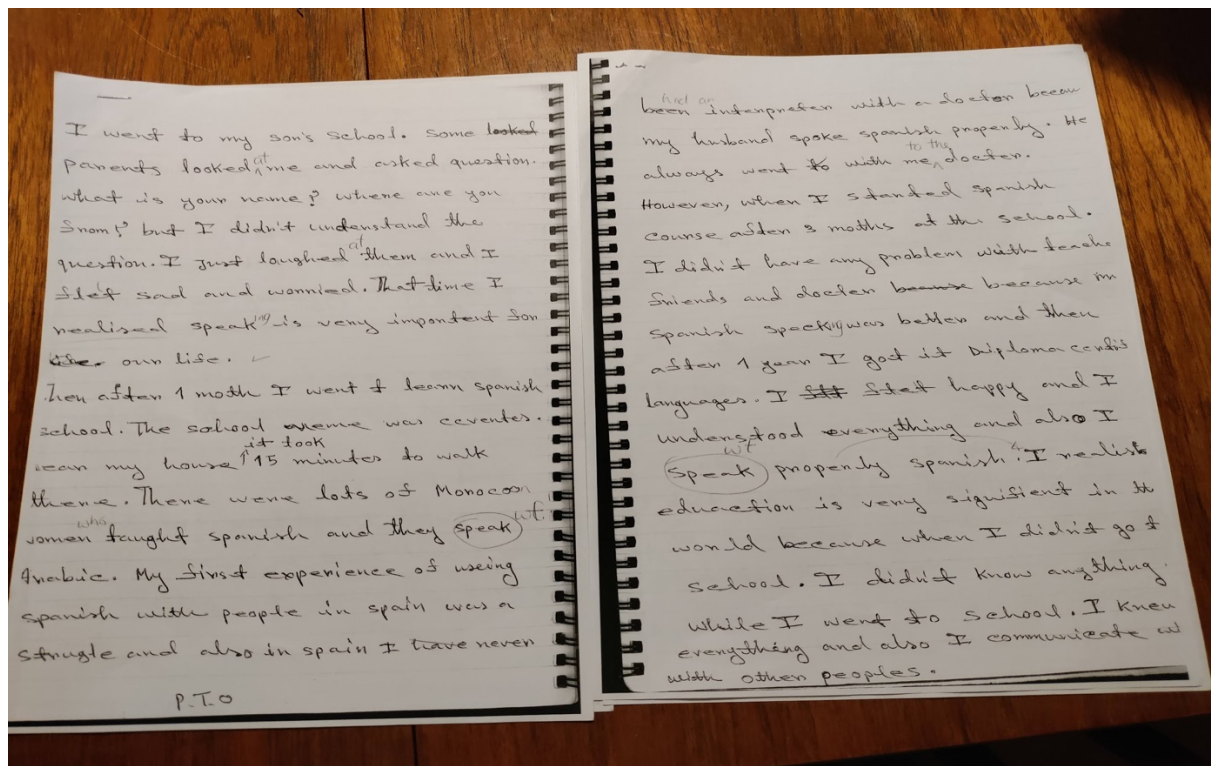 I went to my son's school. Some looked
Parents looked at me and asked question.
What is your name? where are you
from? but I didn't understand the
question. I just laughed at them and I
flet sad and worried. That time I
realised speaking is very importent for
the our life.
Then after moth I went t learn spanish
school. The school name was ceventes.
near my house it took 15 minutes to walk
there. There were lots of Morocoon
women who taught spanish and they speak wt.
Arabic. My first experience of useing
spanish with people in spain was a
strugle and also in spain I have never
P.T.O
had an
been interpreter with a doctor becau
my husband spoke spanish properly. He
always went to with me to the docter.
However, when I started spanish
course after 3 moths at the school.
I didn't have any problem with teache
friends and docter because because m
spanish speeking was better and then
after 1 year I got it Diploma
languages. I flet happy and I
understood everything and also I
wt
speak properly spanish. I realis
education is very signifient in th
world because when I didn't go t
school. I didn't know anything.
while I went to school. I knew
everything and also I communicate w
with other peoples.